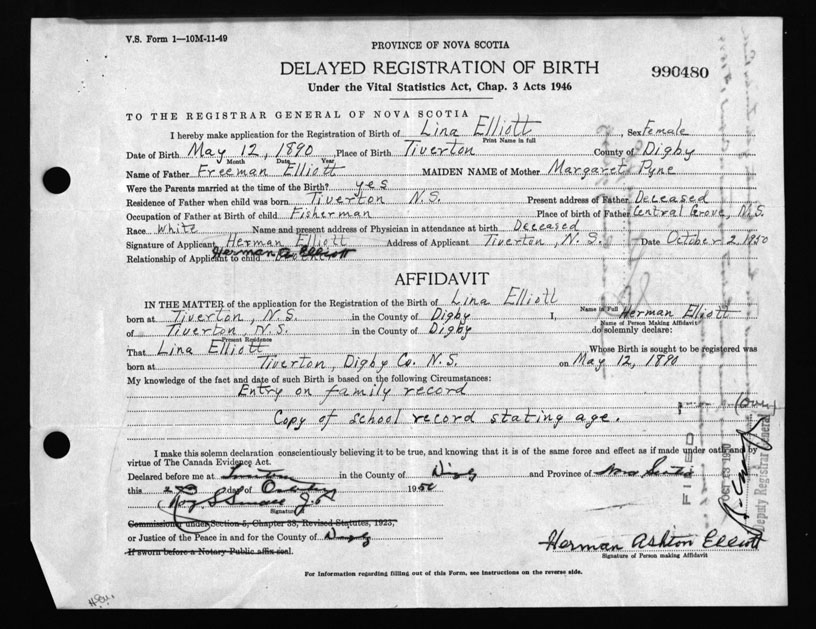 V.S. Form 1—10M-11-49
PROVINCE OF NOVA SCOTIA
DELAYED REGISTRATION OF BIRTH
990480
Under the Vital Statistics Act, Chap. 3 Acts 1946
TO THE REGISTRAR GENERAL OF NOVA SCOTIA
I hereby make application for the Registration of Birth of Lina Elliott, Sex Female
Print Name in full
Date of Birth May 12, 1890 Place of Birth Tiverton County of Digby
Month Date Year
Name of Father Freeman Elliott MAIDEN NAME of Mother Margaret Pyne
Were the Parents married at the time of the Birth? yes
Residence of Father when child was born Tiverton N.S. Present address of Father Deceased
Occupation of Father at Birth of child Fisherman Place of birth of Father Central Grove, N.S.
Race White Name and present address of Physician in attendance at birth Deceased
Signature of Applicant Herman Elliott Address of Applicant Tiverton, N.S. Date October 2, 1950
Relationship of Applicant to child Herman A. Elliott
AFFIDAVIT
IN THE MATTER of the application for the Registration of the Birth of Lina Elliott
born at Tiverton, N.S. in the County of Digby I, Herman Elliott
Name in Full
Name of Person Making Affidavit
of Tiverton, N.S. in the County of Digby do solemnly declare:
Present Residence
That Lina Elliott Whose Birth is sought to be registered was
born at Tiverton, Digby Co. N.S. on May 12, 1890
My knowledge of the fact and date of such Birth is based on the following Circumstances:
Entry on family record
(Over)
Copy of school record stating age.
I make this solemn declaration conscientiously believing it to be true, and knowing that it is of the same force and effect as if made under oath and by
virtue of The Canada Evidence Act.
Declared before me at in the County of Digby and Province of Nova Scotia
this day of October 1950
Signature
Commissioner under Section 5, Chapter 38, Revised Statutes, 1923,
or Justice of the Peace in and for the County of Digby
If sworn before a Notary Public affix seal.
Herman Ashton Elliott
Signature of Person making Affidavit
For Information regarding filling out of this Form, see instructions on the reverse side.
FILED
OCT 13 1950
Deputy Registrar General